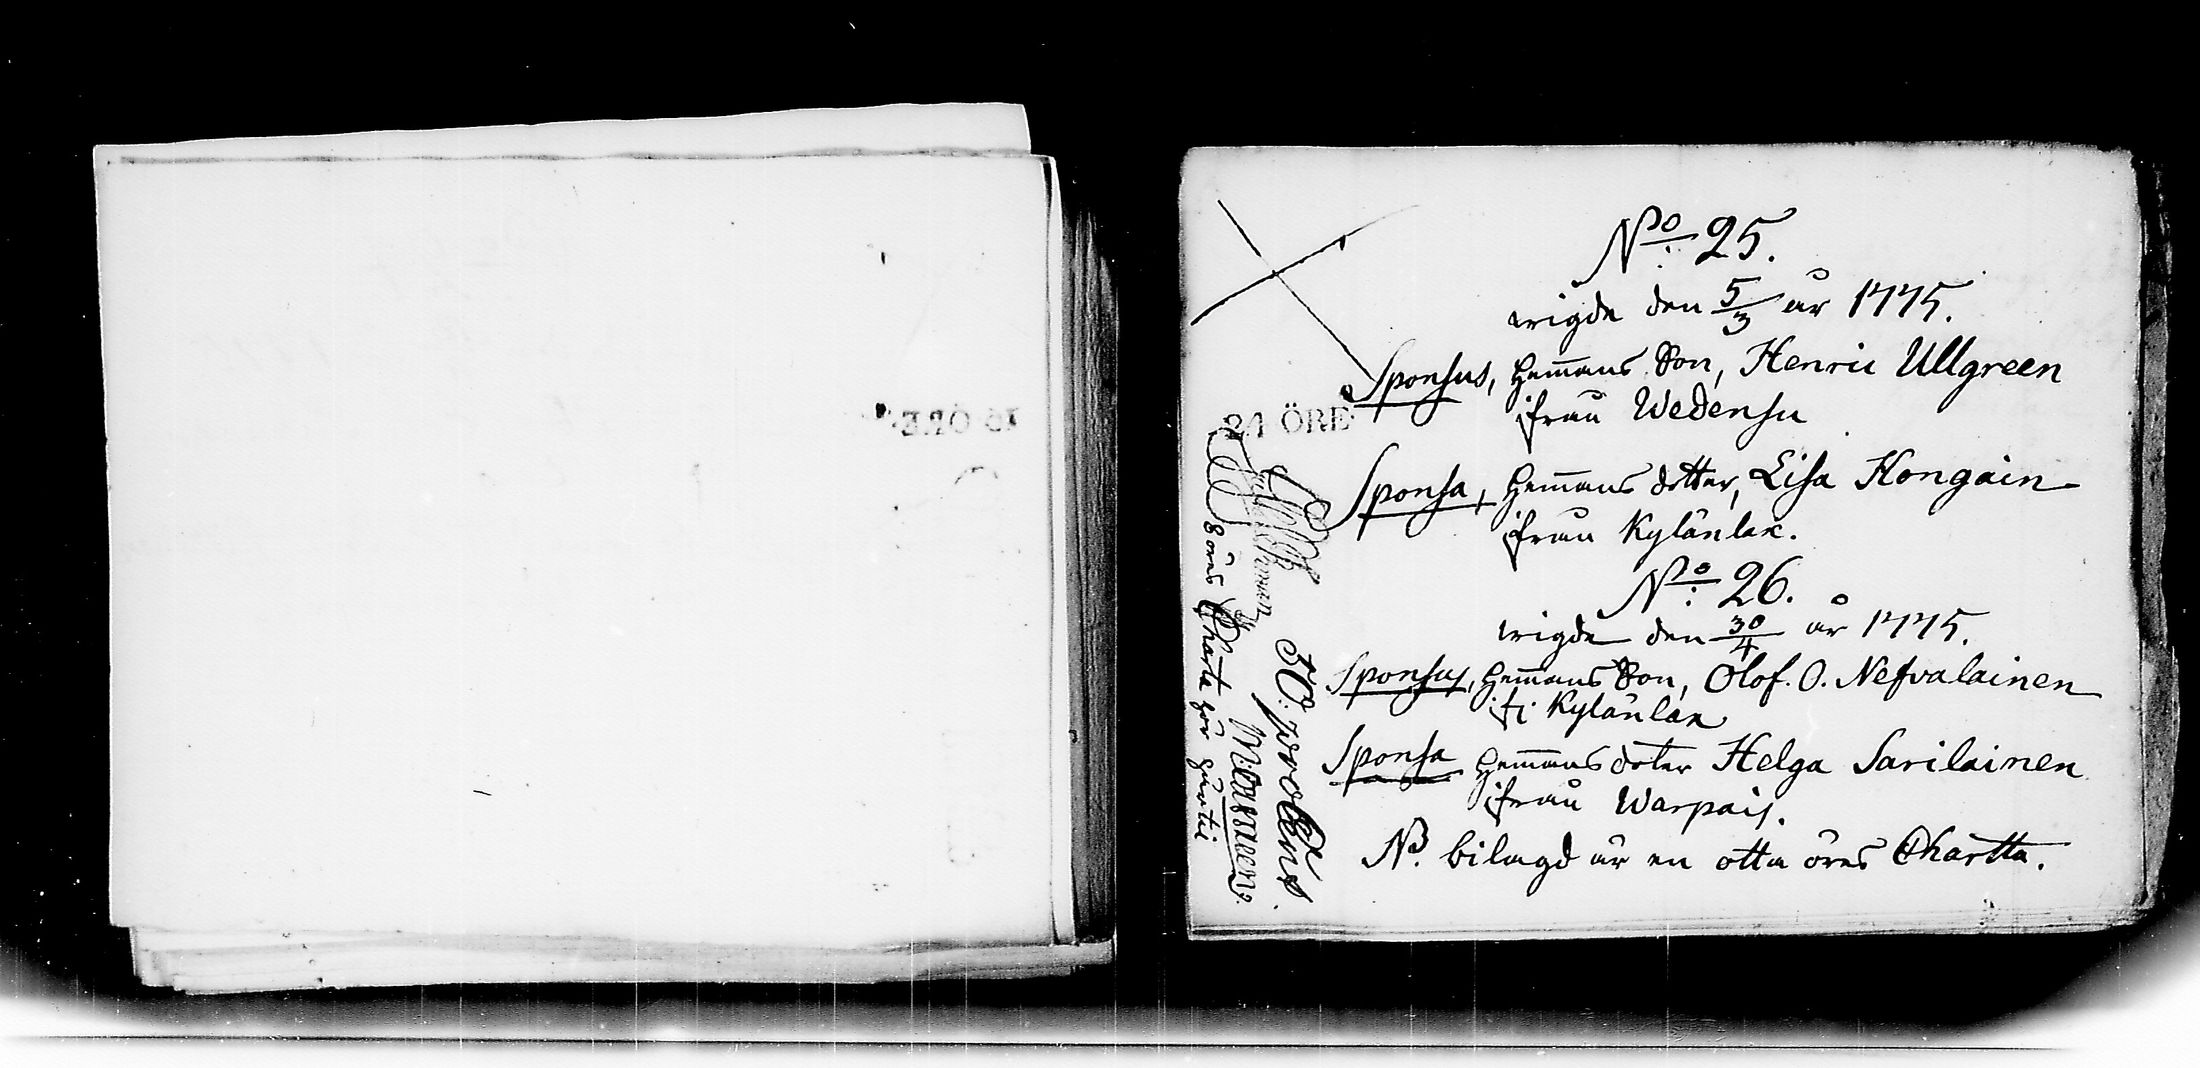 No 25.
wigde den 5/3 år 1775.
Sponsus, Hem̄ans Son, Henric Ullgreen
ifrån Wedensu
Sponsa, Hem̄ans dotter, Lisa Kongain
ifrån Kylänlax.
No 26.
wigde den 30/4 år 1775.
Sponsus, Hem̄ans Son, Olof. O. Nefvalainen
if: Kylänlax
Sponsa Hem̄ans doter Helga Sarilainen
ifrån Warpais.
NB. bilagd är en otta öres Chartta.
24 ÖRE
8 öres Charta hör hertil